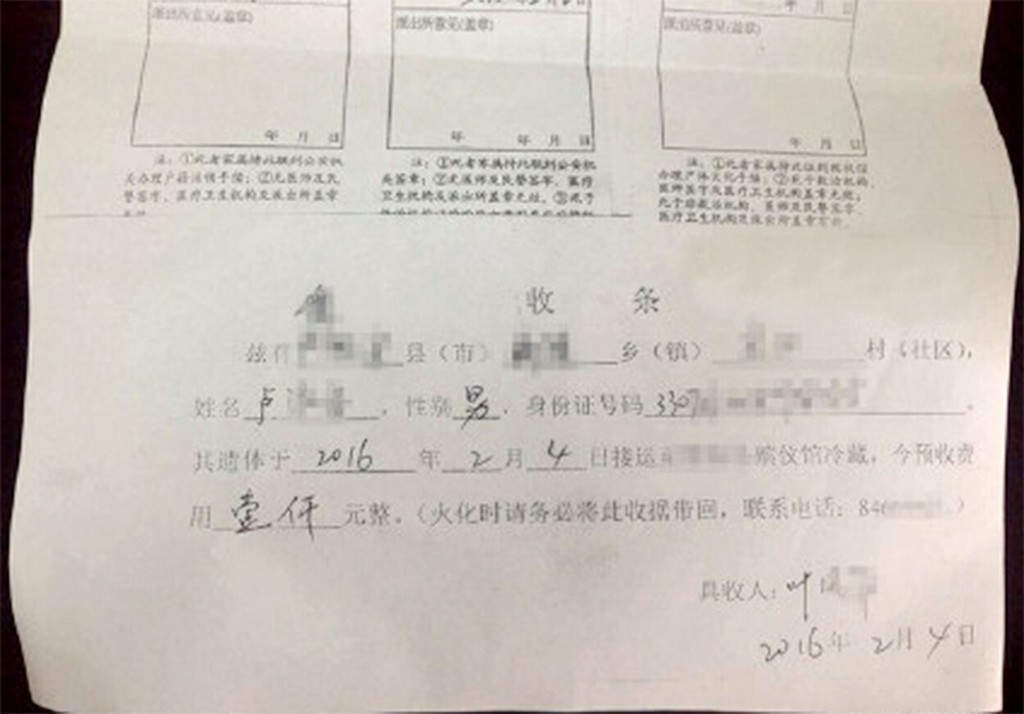 年 月 日
派出所意见(盖章) 派出所意见(盖章) 派出所意见(盖章)
年 月 日 年 月 日 年 月 日
注：①死者家属持此联到公安机
关办理户籍注销手续；②无医师及民
警签字、医疗卫生机构及派出所盖章
注：①死者家属持此联到公安机
关签章；②无医师及民警签字、医疗
卫生机构及派出所盖章无效。③死于
注：①死者家属持此
办理尸体火化手续；②死于救治机构，
医师签字及医疗卫生机构盖章有效；
死于非救治机构，医师及民警签字、
医疗卫生机构及派出所盖章有效。
收 条
兹有 县（市） 乡（镇） 村（社区），
姓名卢 ，性别男，身份证号码3307
其遗体于2016年2月4日接运 殡仪馆冷藏，今预收费
用壹仟元整。（火化时请务必将此收据带回，联系电话：84 ）
具收人：叶
2016年2月4日